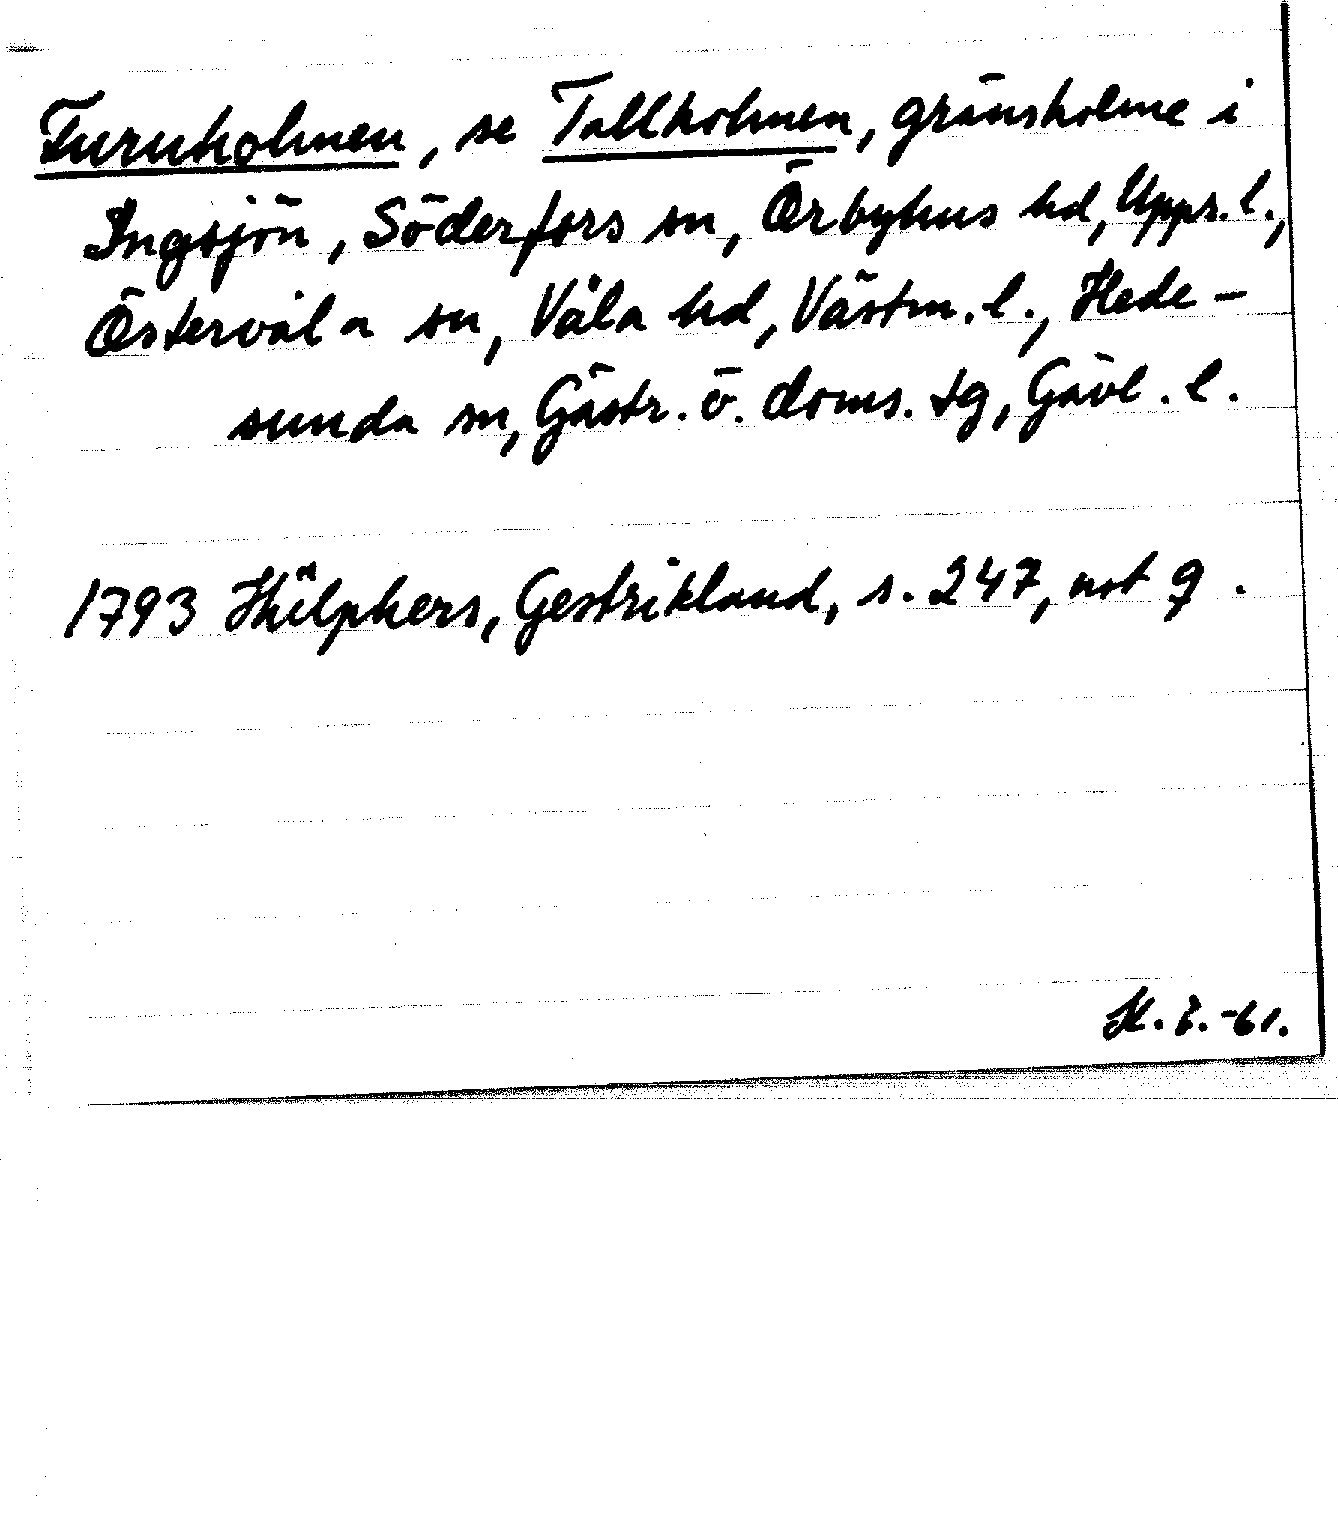 Furuholmen, se Tallholmen, gränsholme i
Ingsjön, Söderfors sn, Örbyhus hd, Upps. l.,
Östervåla sn, Våla hd, Västm. l., Hede-
sunda sn, Gästr. ö. doms. tg, Gävl. l.
1793 Hülphers, Gestrikland, s. 247, not g.
-61.